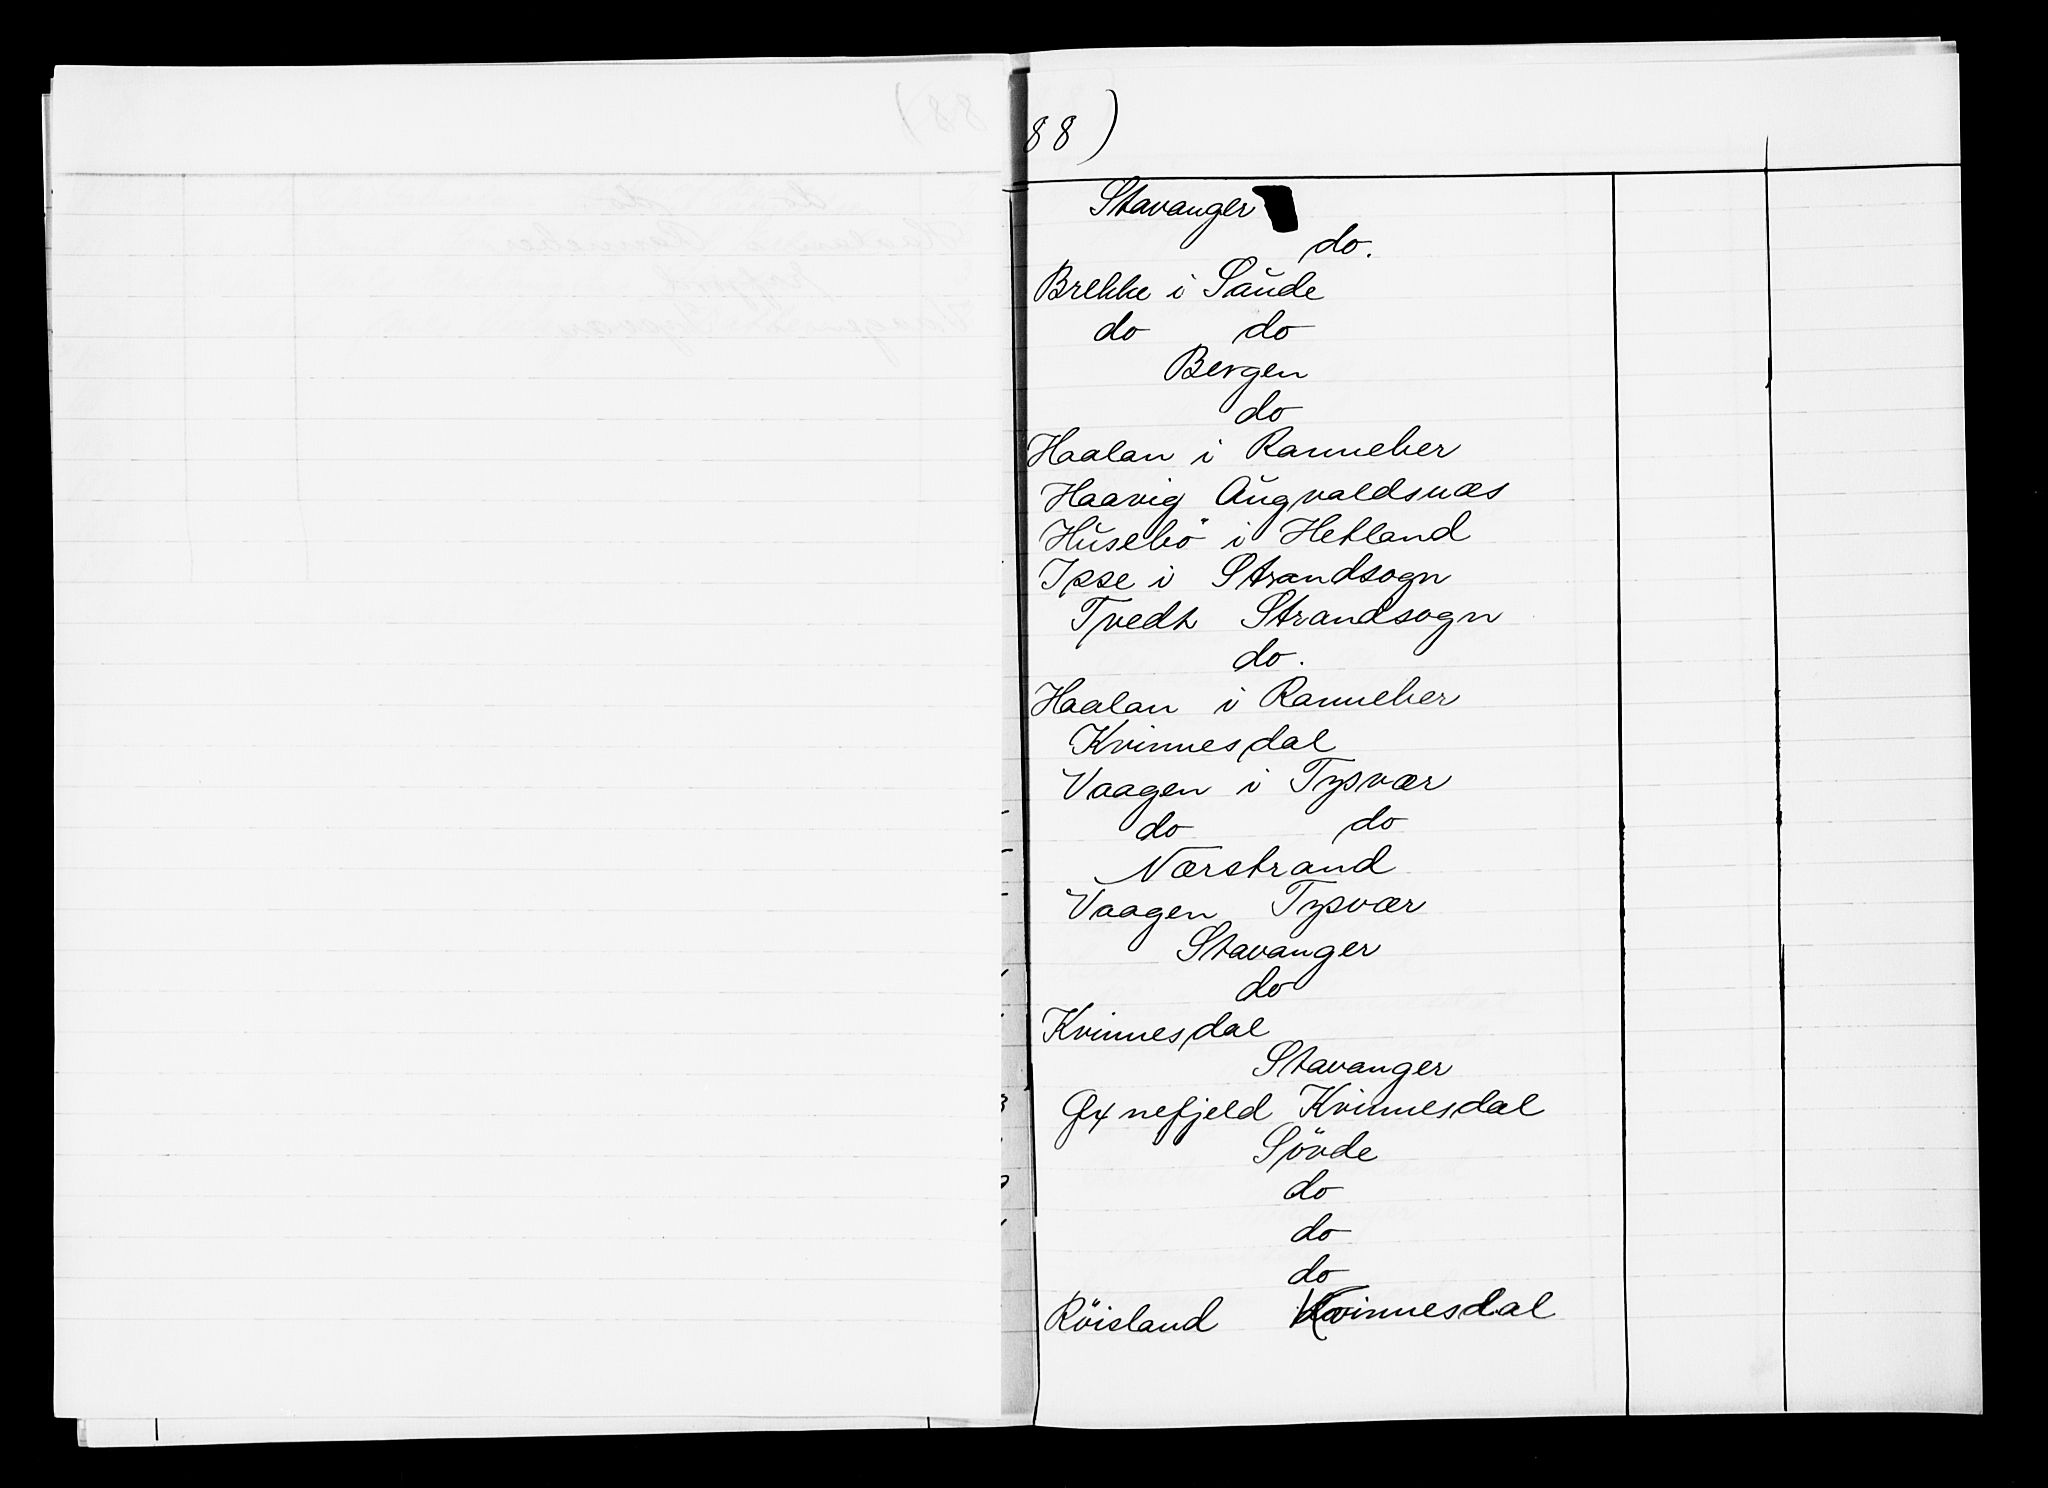 88)
Stavanger
do.
Brekke i Saude
do do
Bergen
do
Haalan i Ranneber
Haavig Augvaldsnæs
Husebö i Hetland
Isse i Strandsogn
Tvedt Strandsogn
do.
Haalan i Ranneber
Kvinnesdal
Vaagen i Tysvær
do do
Nærstrand
Vaagen Tysvær
Stavanger
do
Kvinnesdal
Stavanger
Kvinnesdal
Sövde
do
do
do
Röisland Kvinnesdal